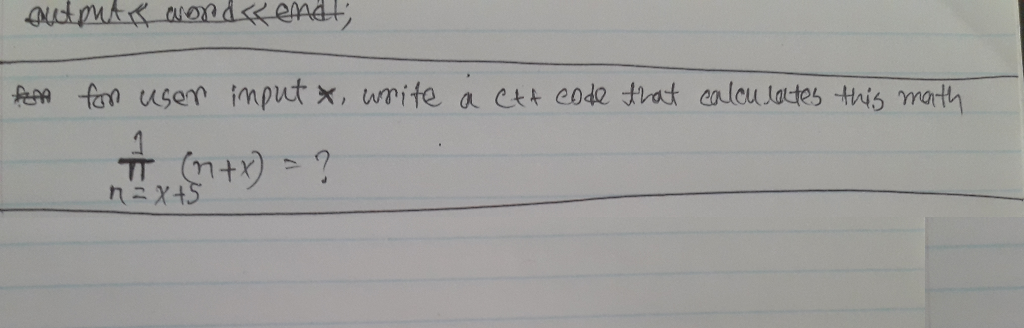 output<< word<<endl;
for user input x, write a c++ code that calculates this math
1
π (n+x) = ?
n=x+5